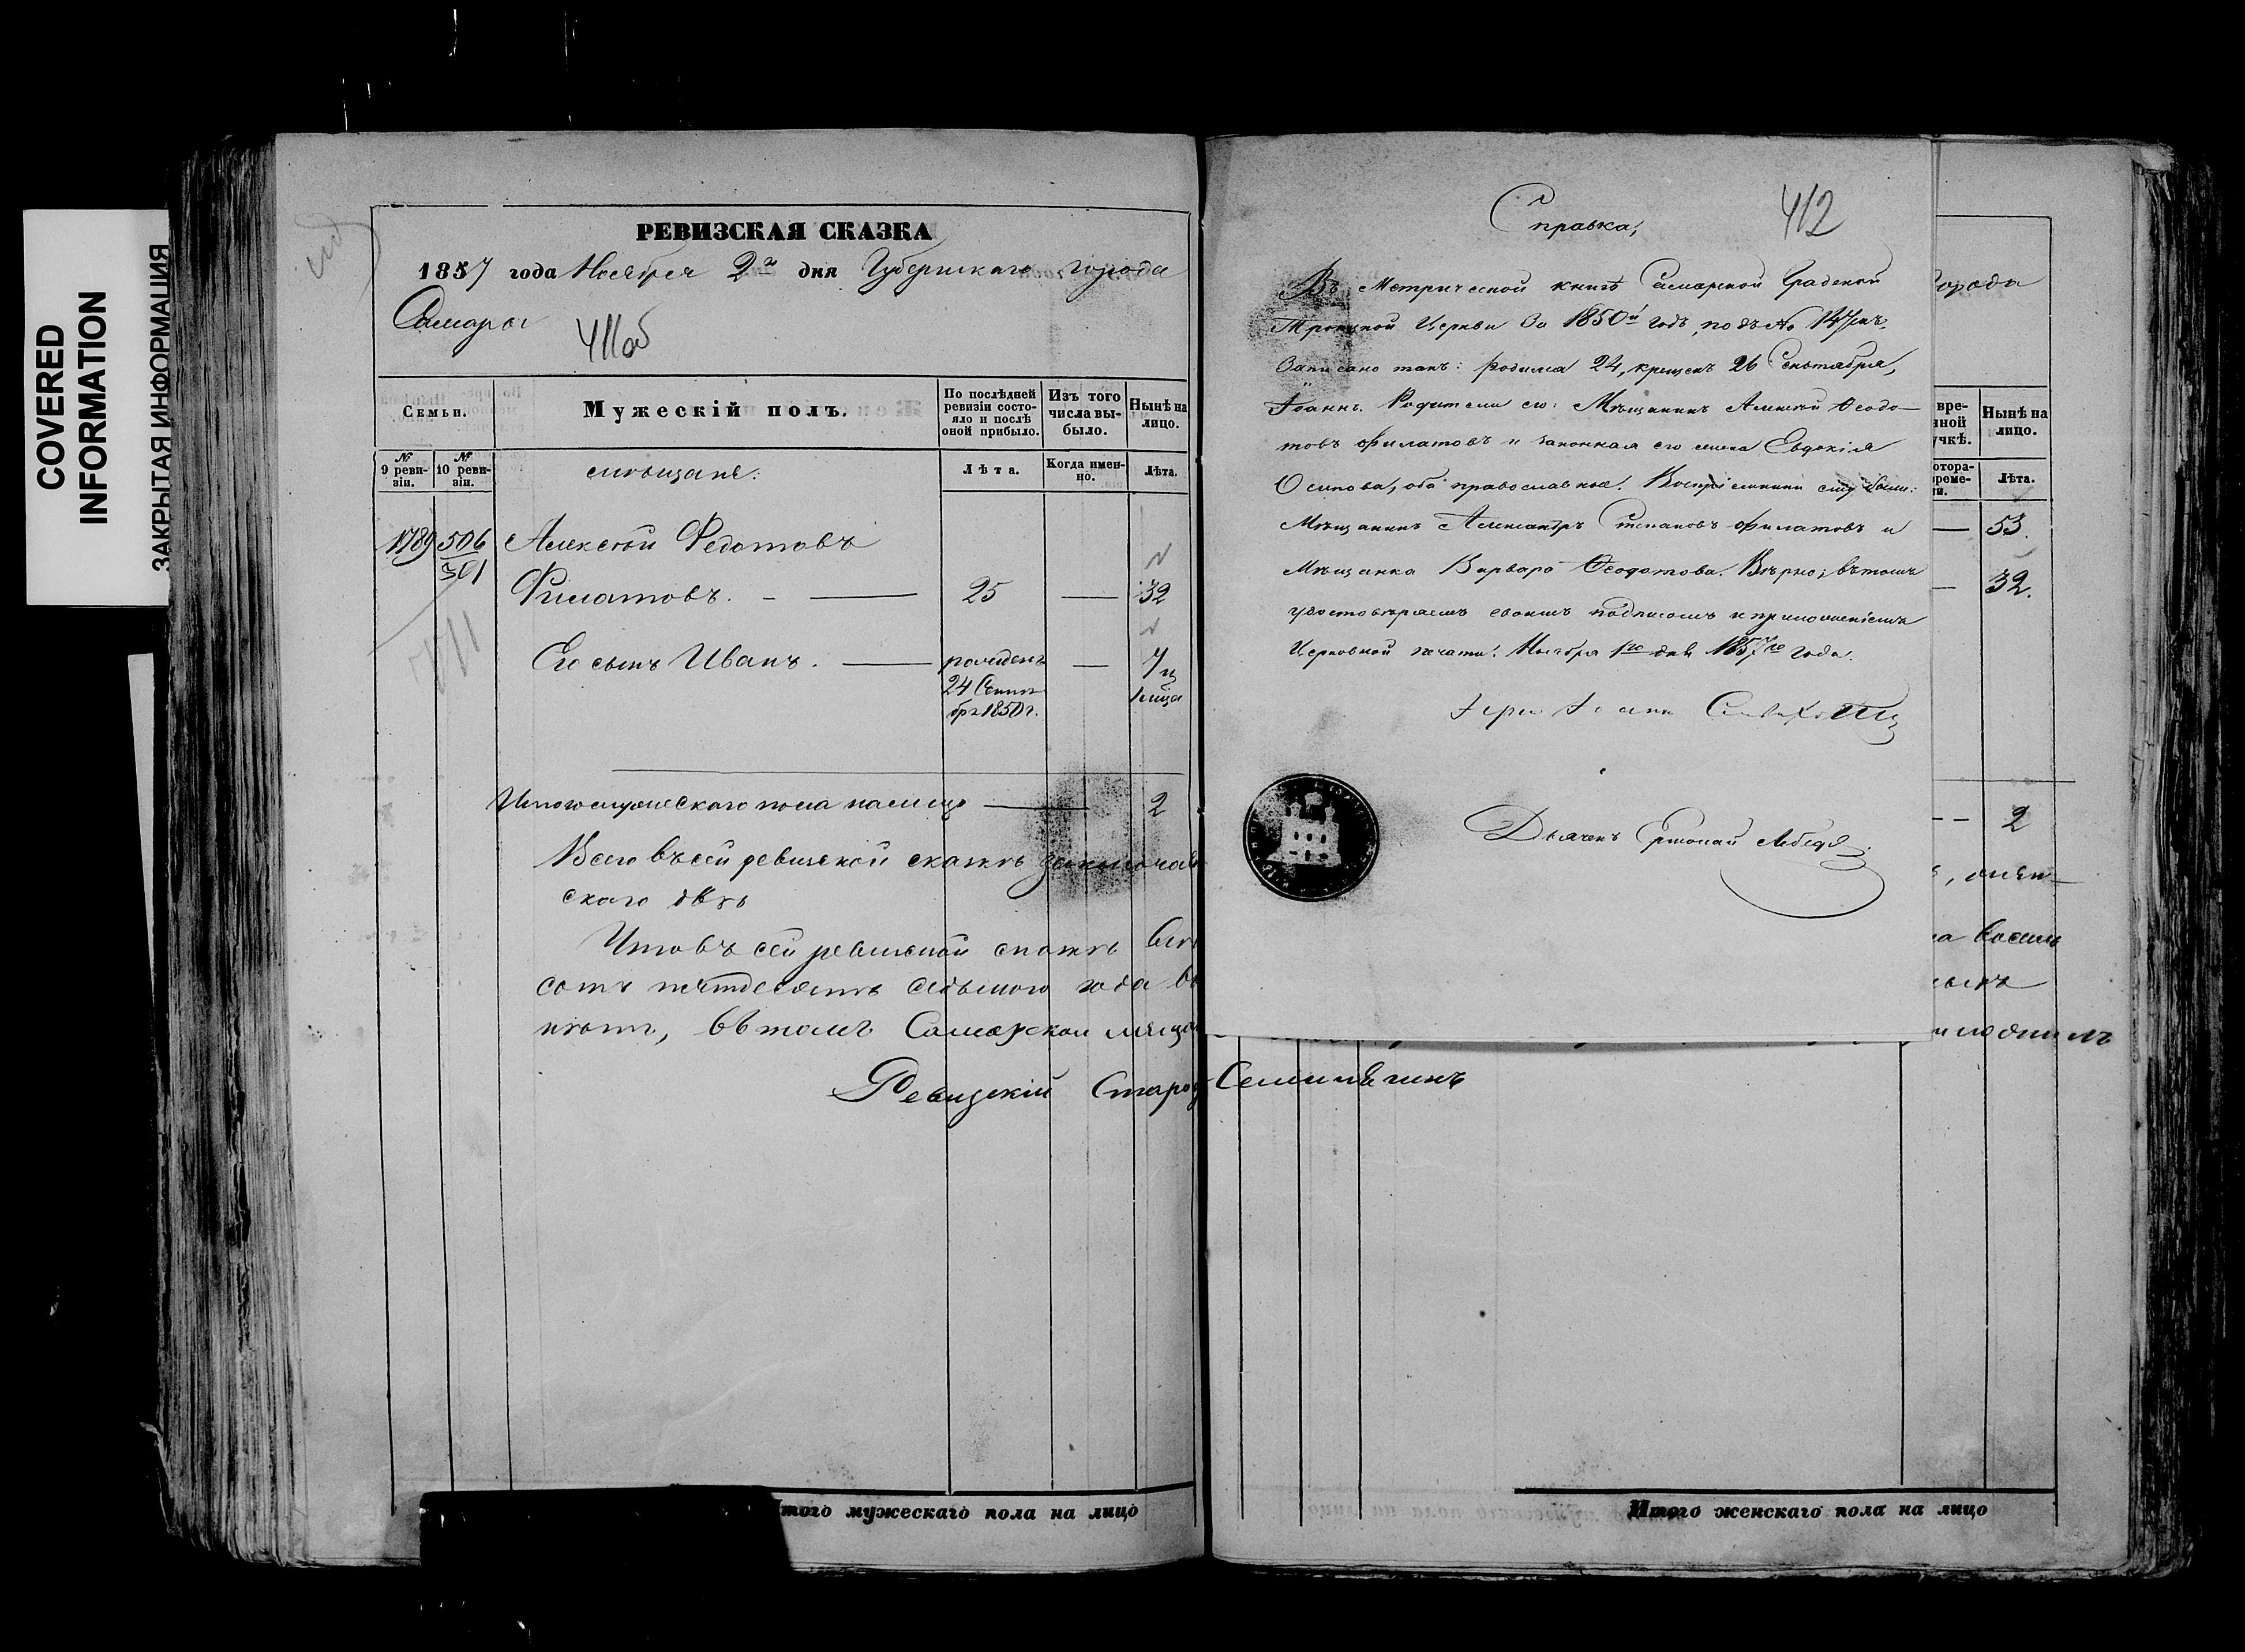 COVERED
INFORMATION
ЗАКРЫТАЯ ИНФОРМАЦИЯ
РЕВИЗСКАЯ СКАЗКА
1857 года Ноября 2го дня Губернскаго города
Самары
411об
Семьи.
Мужескій полъ.
По послѣдней ревизіи состояло и послѣ оной прибыло.
Изъ того числа выбыло.
Нынѣ на лицо.
№ 9 ревизіи.
№ 10 ревизіи.
мѣщане:
Лѣта.
Когда именно.
Лѣта.
1789 506 Алексѣй Федотовъ
501
Филатовъ. 25 — 32
Его сынъ Иванъ. рожденъ — 7 и
24 Сентя
бря 1850 г.
1 мѣся
Итого мужескаго пола налицо 2
Всего въ сей ревизской сказкѣ заключае
скаго двѣ
Что въ сей ревизской сказкѣ всѣ
сотъ пятдесятъ седьмого года
въ томъ Самарской мѣща
Ревизскій Старо
Семилѣ
Итого мужескаго пола на лицо
412
Справка,
Въ Метрической книгѣ Самарской Градской
Троицкой Церкви за 1850й годъ, подъ № 147мъ
Записано такъ: родился 24, крещенъ 26 Сентября,
Іоаннъ. Родители его: Мѣщанинъ Алексѣй Ѳеодо-
товъ Филатовъ и законная его жена Евдокія
Осипова, оба православные. Воспріемники ему были:
Мѣщанинъ Александръ Степановъ Филатовъ и
Мѣщанка Варвара Ѳеодотова. Вѣрно; въ томъ
удостовѣряемъ своимъ подписомъ и приложеніемъ
Церковной печати. Ноября 1го дня 1857го года.
Іерей Іоаннъ
Дьячекъ
города
Нынѣ на лицо.
Лѣта.
— 53.
— 32.
2
Итого женскаго пола на лицо